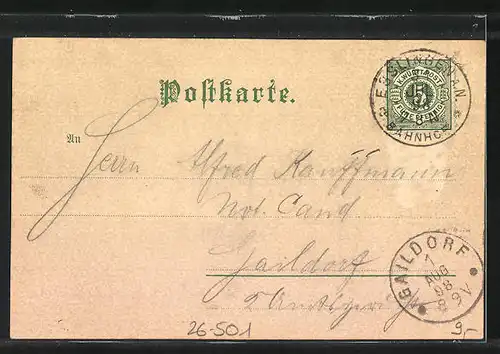 Postkarte.
ESSLINGEN A.N.
BAHNHOF
K. WÜRTT. POST
An
Herrn Alfred Kauffmann
Not. Cand
Gaildorf
GAILDORF
1
AUG
98
8-9V
26-501
9,-